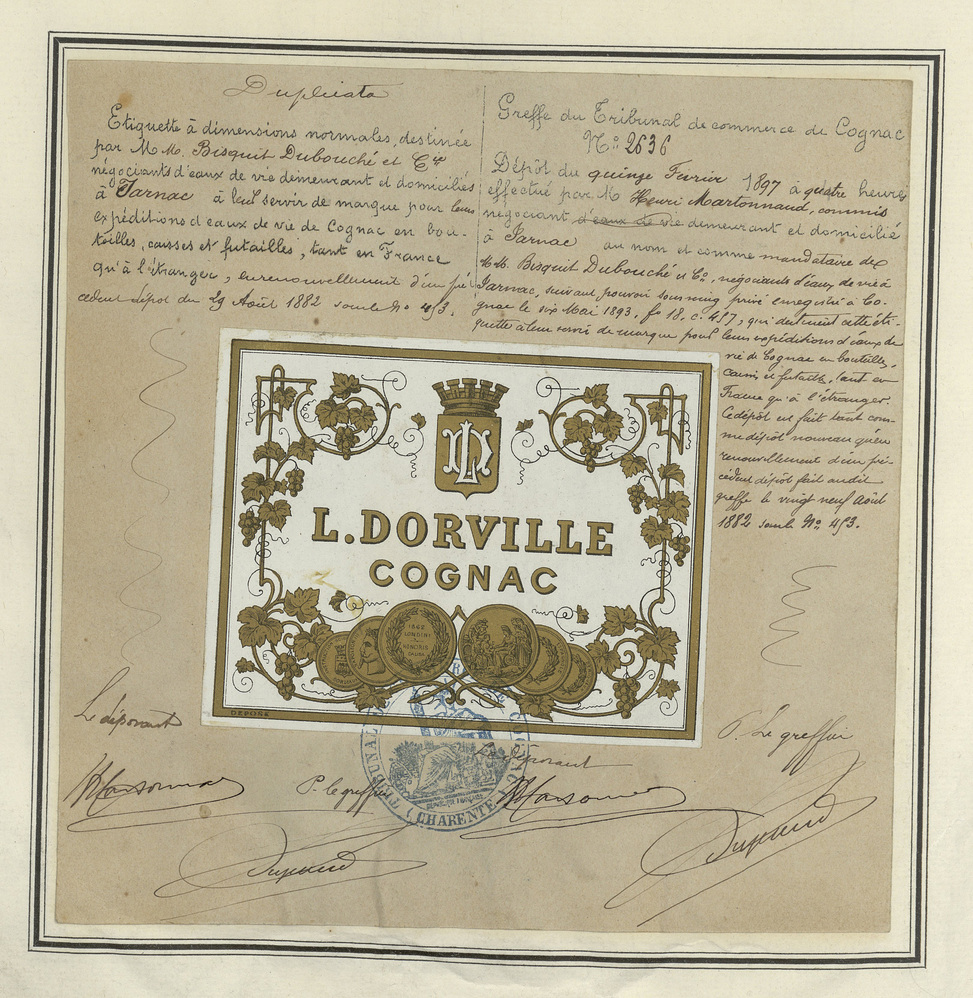 Duplicata
Etiquette à dimensions normales, destinée
par M M. Bisquit Dubouché et Cie
négociants d'eaux de vie demeurant et domiciliés
à Jarnac à leur servir de marque pour leurs
expéditions d'eaux de vie de Cognac en bou-
teilles, caisses et futailles, tant en France
qu'à l'étranger, en renouvellement d'un pré
cédent dépôt du 29 Août 1882 sous le No 453.
Greffe du Tribunal de commerce de Cognac
No 2636
Dépôt du quinze Fevrier 1897 à quatre heures
effectué par M Henri Martonnaud, commis
négociant d'eaux de vie demeurant et domicilié
à Jarnac au nom et comme mandataire de
MM. Bisquit Dubouché et Co, négociants d'eaux de vie à
Jarnac, suivant pouvoir sous seing privé enregistré à Co-
gnac le six Mai 1893, fo 18, c. 457, qui destinent cette éti-
quette à leur servir de marque pour leurs expéditions d'eaux de
vie de Cognac en bouteilles,
caisses et futailles, tant en
France qu'à l'étranger.
Ce dépôt est fait tant com
me dépôt nouveau qu'en
renouvellement d'un pré-
cédent dépôt fait audit
greffe le vingt neuf Août
1882 sous le No 453.
LD
L. DORVILLE
COGNAC
1862
LONDINI
HONORIS
CAUSA
DÉPOSÉ
Le déposant
P. Le greffier
Le déposant
P. le greffier
TRIBUNAL
COGNAC
(CHARENTE)